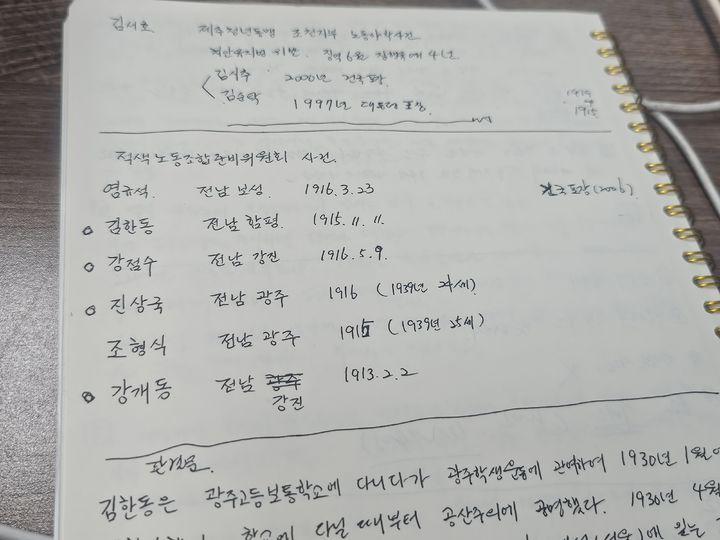 김서호 제주청년동맹 조천지부 노동야학사건
치안유지법 위반. 징역 6월 집행유예 4년
김시추 2000년 건국포장
김순탁 1997년 대통령 표창
1914
1915
적색 노동조합 준비위원회 사건
염규석 전남 보성. 1916.3.23 건국포장(2006)
김한동 전남 함평. 1915.11.11.
강점수 전남 강진 1916.5.9.
진상국 전남 광주 1916 (1939년 24세)
조형식 전남 광주 1915 (1939년 25세)
강개동 전남 광주 1913.2.2
강진
판결문.
김한동은 광주고등보통학교에 다니다가 광주학생운동에 관여하여 1930년 1월
학교에 다닐 때부터 공산주의에 공명했다. 1930년 4월
에 있는